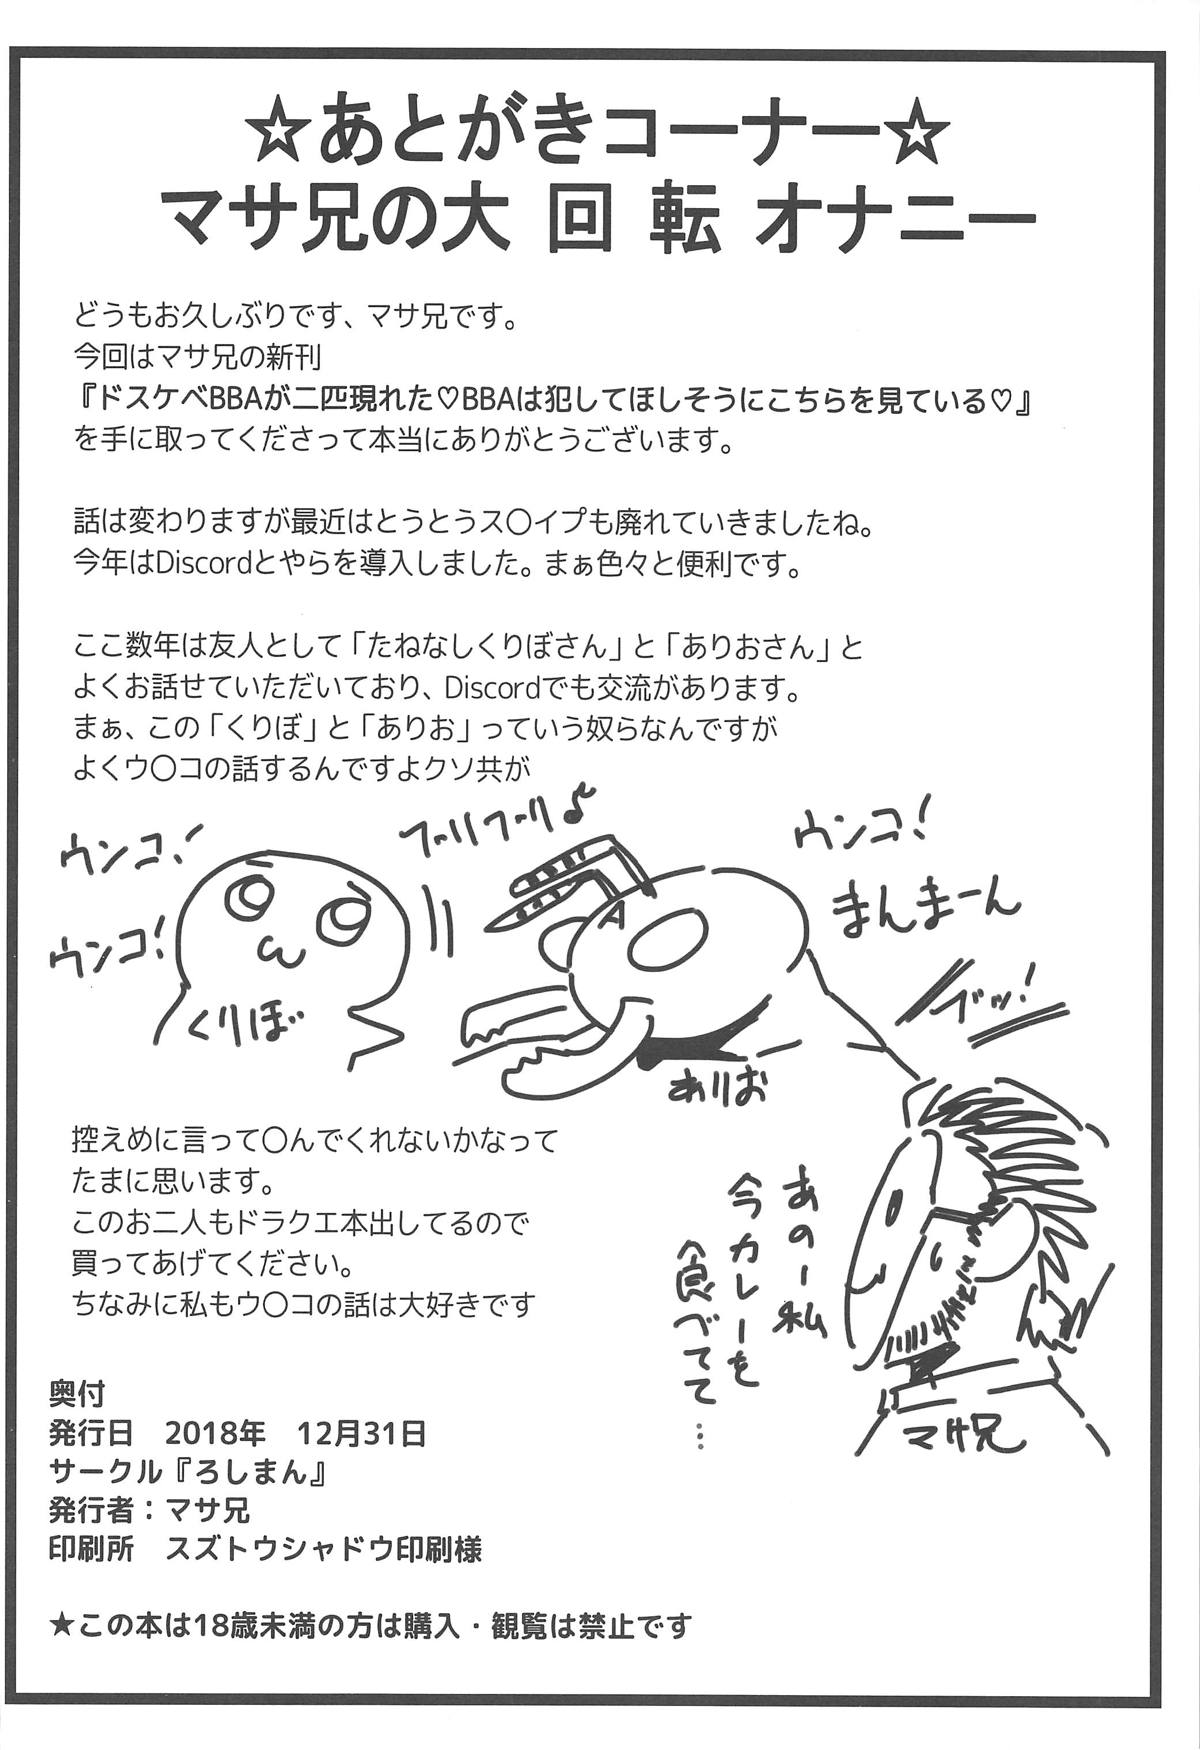 ☆あとがきコーナー☆
マサ兄の大 回 転 オナニー
どうもお久しぶりです、マサ兄です。
今回はマサ兄の新刊
『ドスケベBBAが二匹現れた♡BBAは犯してほしそうにこちらを見ている♡』
を手に取ってくださって本当にありがとうございます。
話は変わりますが最近はとうとうス〇イプも廃れていきましたね。
今年はDiscordとやらを導入しました。まぁ色々と便利です。
ここ数年は友人として「たねなしくりぼさん」と「ありおさん」と
よくお話せていただいており、Discordでも交流があります。
まぁ、この「くりぼ」と「ありお」っていう奴らなんですが
よくウ〇コの話するんですよクソ共が
ウンコ!
ウンコ!
くりぼ
ブリブリ♪
A
ありお
ウンコ!
まんまーん
ブッ!
あのー私
今カレーを
食べてて…
マサ兄
控えめに言って〇んでくれないかなって
たまに思います。
このお二人もドラクエ本出してるので
買ってあげてください。
ちなみに私もウ〇コの話は大好きです
奥付
発行日　2018年　12月31日
サークル『ろしまん』
発行者：マサ兄
印刷所　スズトウシャドウ印刷様
★この本は18歳未満の方は購入・観覧は禁止です